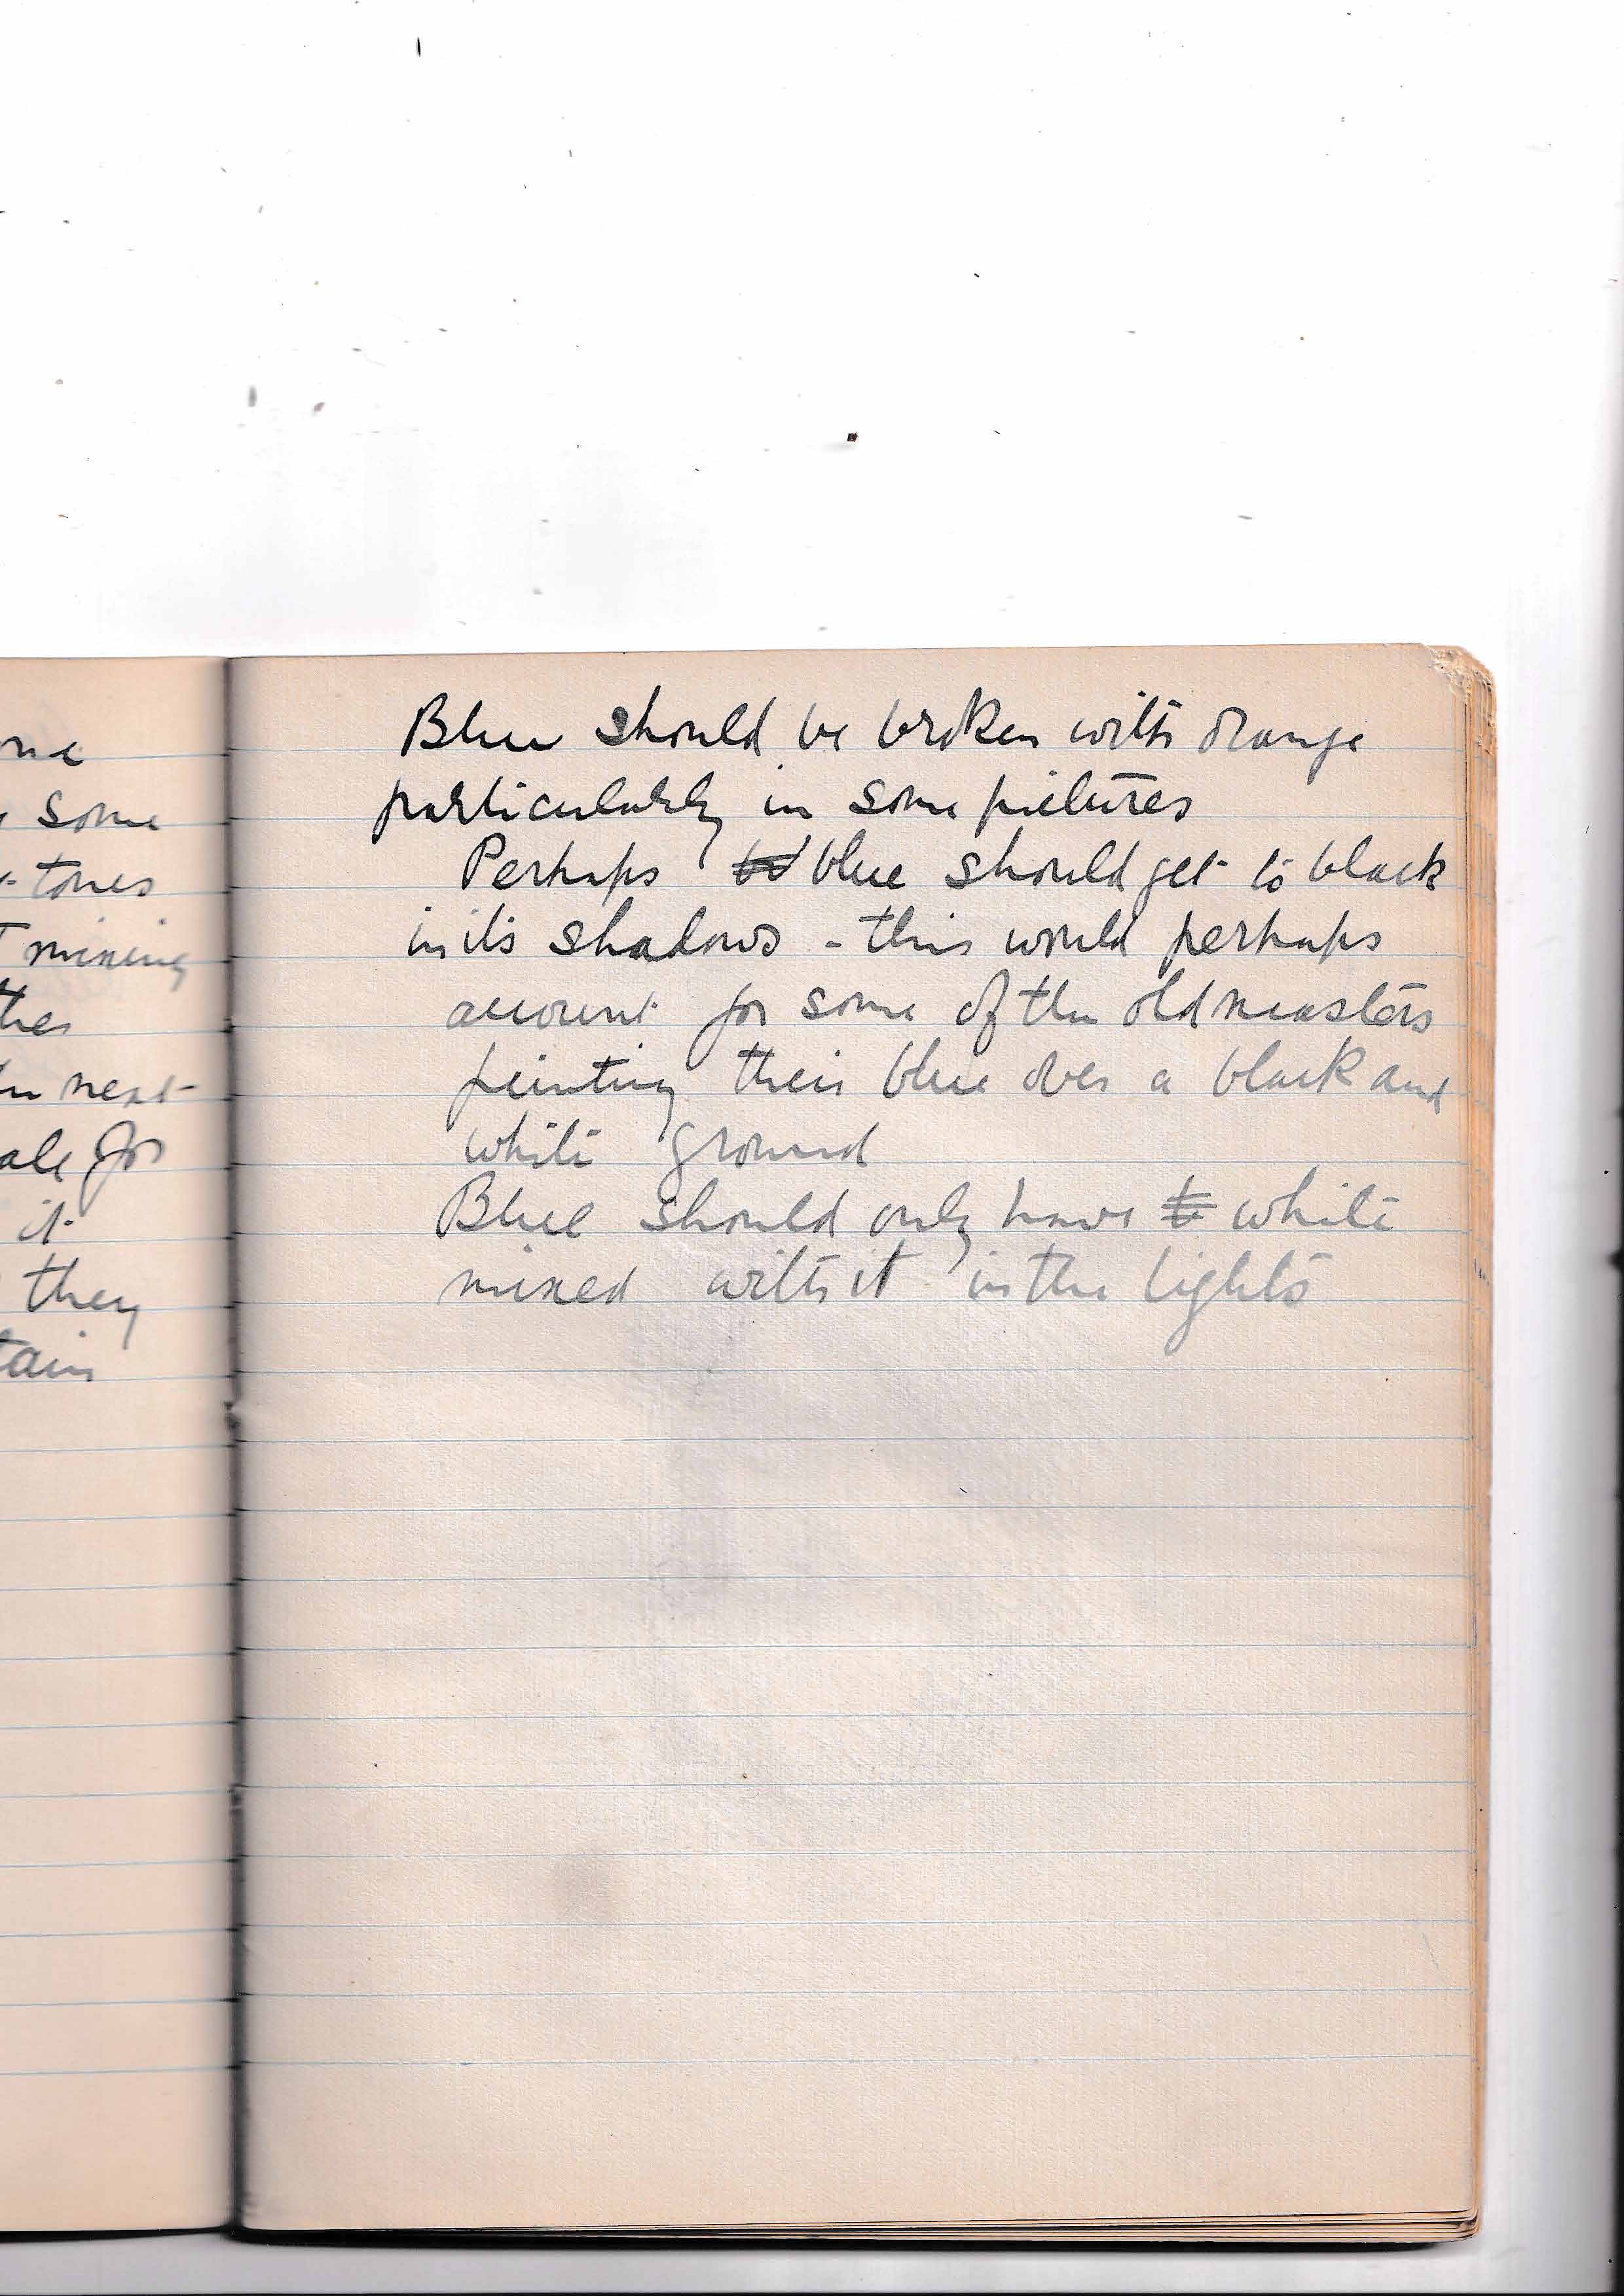 one
some
tones
mixing
the next
ale for
it
they
tain
Blue should be broken with orange
particularly in some pictures
Perhaps blue should get to black
in its shadows - this would perhaps
account for some of the old masters
painting their blue over a black and
white ground
Blue should only have white
mixed with it in the lights